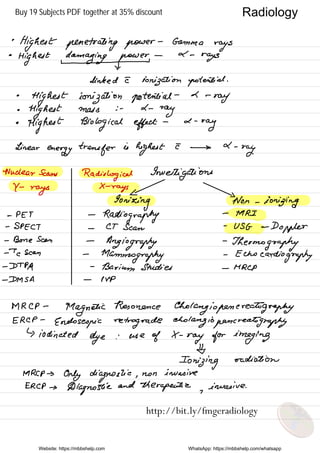 Buy 19 Subjects PDF together at 35% discount
Radiology
• Highest penetrating power - Gamma rays
• Highest damaging power - α - rays
linked c̄ Ionization potential.
• Highest ionization potential - α - ray
• Highest mass :- α - ray
• Highest Biological effect - α - ray
Linear energy transfer is highest c̄ → α - ray
Nuclear Scans
Radiological Investigations
γ- rays
X-rays
Ionizing
Non - ionizing
- PET
- Radiography
- MRI
- SPECT
- CT Scan
- USG - Doppler
- Bone Scan
- Angiography
- Thermography
- Tc Scan
- Mammography
- Echocardiography
- DTPA
- Barium Studies
- MRCP
- DMSA
- IVP
MRCP - Magnetic Resonance Cholangiopancreatography
ERCP - Endoscopic retrograde cholangiopancreatography
↳ iodinated dye : use of X-ray for imaging
Ionizing radiation
MRCP → Only diagnostic, non invasive
ERCP → Diagnostic and therapeutic, invasive.
http://bit.ly/fmgeradiology
Website: https://mbbshelp.com
WhatsApp: https://mbbshelp.com/whatsapp